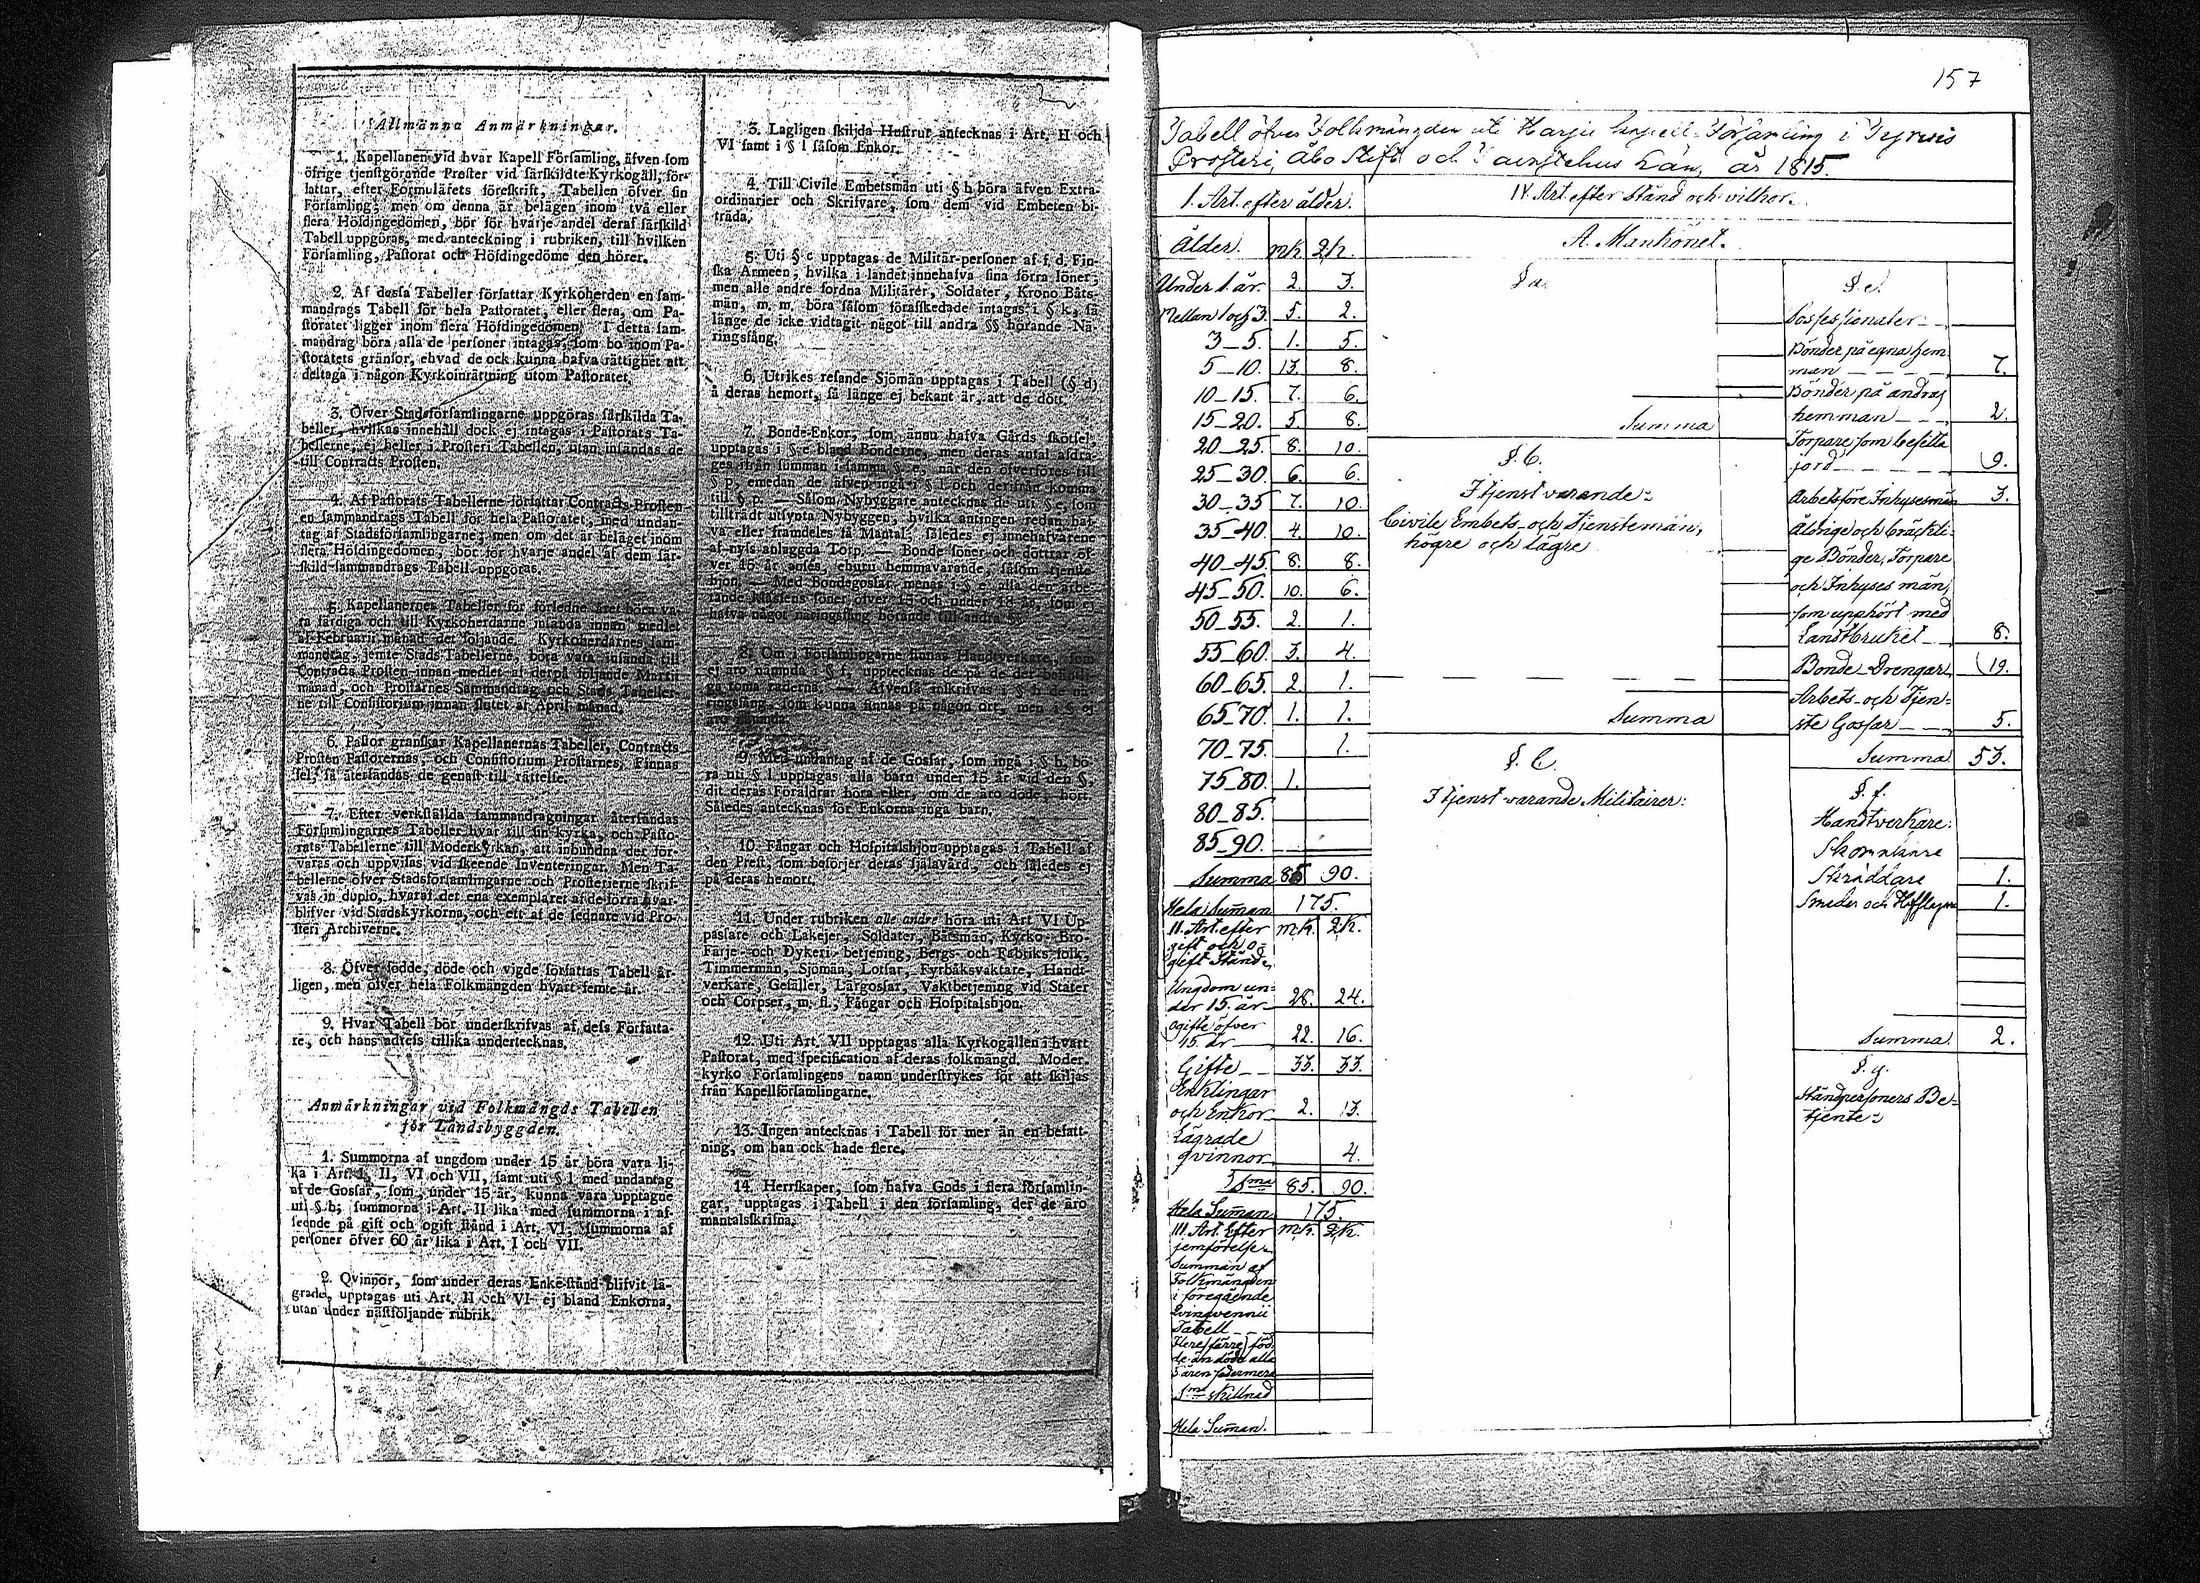 Allmänna Anmärkningar.
1. Kapellanen vid hvar Kapell Församling, äfven som
öfrige tjenstgörande Prester vid särskildte Kyrkogäll, för-
fattar, efter Formulärets föreskrift, Tabellen öfver sin
Församling; men om denna är belägen inom två eller
flera Höfdingedömen, bör för hvarje andel deraf särskild
Tabell uppgöras, med anteckning i rubriken, till hvilken
Församling, Pastorat och Höfdingedöme den hörer.
2. Af dessa Tabeller författar Kyrkoherden en sam-
mandrags Tabell för hela Pastoratet, eller flera, om Pa-
storatet ligger inom flera Höfdingedömen. I detta sam-
mandrag böra alla de personer intagas, som bo inom Pa-
storatets gränsor, ehvad de ock kunna hafva rättighet att
deltaga i någon Kyrkoinrättning utom Pastoratet.
3. Öfver Stadsförsamlingarne uppgöras särskilda Ta-
beller, hvilkas innehåll dock ej intagas i Pastorats Ta-
bellerne, ej heller i Prosteri Tabellen, utan insändas de
till Contracts Prosten.
4. Af Pastorats Tabellerne författar Contracts Prosten
en sammandrags Tabell för hela Pastoratet, med undan-
tag af Stadsförsamlingarne; men om det är beläget inom
flera Höfdingedömen, bör för hvarje andel af dem sär-
skild sammandrags Tabell uppgöras.
5. Kapellanernes Tabeller för förledne året böra va-
ra färdiga och till Kyrkoherdarne insända innan medlet
af Februarii månad det följande. Kyrkoherdarnes sam-
mandrag, jemte Stads Tabellerne, böra vara insända till
Contracts Prosten innan medlet af derpå följande Martii
månad, och Prostarnes Sammandrag och Stads Tabeller-
ne till Consistorium innan slutet af April månad.
6. Pastor granskar Kapellanernas Tabeller, Contracts
Prosten Pastorernas, och Consistorium Prostarnes. Finnas
fel, så återsändas de genast till rättelse.
7. Efter verkställda sammandragningar återsändas
Församlingarnes Tabeller hvar till sin kyrka, och Pasto-
rats Tabellerne till Moderkyrkan, att inbundna der för-
varas och uppvisas vid skeende Inventeringar. Men Ta-
bellerne öfver Stadsförsamlingarne och Prosterierne skrif-
vas in duplo, hvaraf det ena exemplaret af de förra qvar-
blifver vid Stadskyrkorna, och ett af de sednare vid Pro-
steri Archiverne.
8. Öfver födde, döde och vigde författas Tabell år-
ligen, men öfver hela Folkmängden hvart femte år.
9. Hvar Tabell bör underskrifvas af dess Författa-
re, och hans adress tillika undertecknas.
Anmärkningar vid Folkmängds Tabellen
för Landsbyggden.
1. Summorna af ungdom under 15 år böra vara li-
ka i Art. I, II, VI och VII, samt uti § l med undantag
af de Gossar, som, under 15 år, kunna vara upptagne
uti § h; summorna i Art. II lika med summorna i af-
seende på gift och ogift stånd i Art. VI; summorna af
personer öfver 60 år lika i Art. I och VII.
2. Qvinnor, som under deras Enke-stånd blifvit lä-
grade, upptagas uti Art. II och VI ej bland Enkorna,
utan under nästföljande rubrik.
3. Lagligen skiljda Hustrur antecknas i Art. II och
VI samt i § l såsom Enkor.
4. Till Civile Embetsmän uti § b böra äfven Extra-
ordinarier och Skrifvare, som dem vid Embeten bi-
träda.
5. Uti § c upptagas de Militär-personer af f. d. Fin-
ska Armeen, hvilka i landet innehafva sina förra löner;
men alle andre fordna Militärer, Soldater, Krono Båts-
män, m. m. böra såsom förafskedade intagas i § k, så
länge de icke vidtagit något till andra §§ hörande Nä-
ringsfång.
6. Utrikes resande Sjömän upptagas i Tabell (§ d)
å deras hemort, så länge ej bekant är, att de dött.
7. Bonde-Enkor, som ännu hafva Gårds skötsel,
upptagas i § e bland Bönderne, men deras antal afdra-
ges ifrån summan i samma § e, när den öfverföres till
§ p, emedan de äfven ingå i § l och derifrån komma
till § p. — Såsom Nybyggare antecknas de uti § e, som
tillträdt utsynta Nybyggen, hvilka antingen redan haf-
va eller framdeles få Mantal; således ej innehafvarene
af nyss anlaggda Torp. — Bonde söner och döttrar öf-
ver 15 år anses, ehuru hemmavarande, såsom tjenste-
hjon. — Med Bondegossar menas i § e alla den arbe-
tande klassens söner öfver 15 och under 18 år, som ej
hafva något näringsfång hörande till andra §§.
8. Om i Församlingarne finnas Handtverkare, som
ej äro nämnda i § f, upptecknas de på de der befintli-
ga toma raderna. — Äfvenså inskrifvas i § h de nä-
ringsfång, som kunna finnas på någon ort, men i § ej
äro nämnda.
9. Med undantag af de Gossar, som ingå i § h, bö-
ra uti § l upptagas alla barn under 15 år vid den §,
dit deras Föräldrar höra eller, om de äro döde, hört.
Således antecknas för Enkorna inga barn.
10. Fångar och Hospitalshjon upptagas i Tabell af
den Prest, som besörjer deras själavård, och således ej
på deras hemort.
11. Under rubriken alle andre böra uti Art. VI Up-
passare och Lakejer, Soldater, Båtsmän, Kyrko- Bro-
Färje- och Dykeri- betjening, Bergs- och Fabriks folk,
Timmermän, Sjömän, Lotsar, Fyrbåksvaktare, Handt-
verkare, Gesäller, Lärgossar, Vaktbetjening vid Städer
och Corpser, m. fl., Fångar och Hospitalshjon.
12. Uti Art. VII upptagas alla Kyrkogällen i hvart
Pastorat, med specification af deras folkmängd. Moder-
kyrko Församlingens namn understrykes för att skiljas
från Kapellförsamlingarne.
13. Ingen antecknas i Tabell för mer än en befatt-
ning, om han ock hade flere.
14. Herrskaper, som hafva Gods i flera församlin-
gar, upptagas i Tabell i den församling, der de äro
mantalsskrifna.
157
Tabell öfver Folkmängden uti Harju Capell-Församling i
Prosteri, Åbo Stift och Tavastehus Län, år 1815.
I. Art. efter ålder.
Ålder. mk. qk.
Under 1 år. 2. 3.
Mellan 1 och 3. 5. 2.
3–5. 1. 5.
5–10. 13. 8.
10–15. 7. 6.
15–20. 5. 8.
20–25. 8. 10.
25–30. 6. 6.
30–35 7. 10.
35–40. 4. 10.
40–45. 8. 8.
45–50. 10. 6.
50–55. 2. 1.
55–60. 3. 4.
60–65. 2. 1.
65–70. 1. 1.
70–75. 1.
75–80. 1.
80–85.
85–90.
Summa 85 90.
Hela Summan 175.
II. Art. efter mk. qk.
gift och o-
gift Stånd.
Ungdom un-
der 15. år 28. 24.
Ogifte öfver
15 år 22. 16.
Gifte 33. 33.
Enklingar
och Enkor 2. 13.
Lägrade
qvinnor 4.
Sma 85. 90.
Hela Summan 175.
III. Art. Efter mk. qk.
jemförelse
Summan af
Folkmängden
i föregående
Qvinqvennii
Tabell
Flere (färre) föd-
de än döde alla
5 åren sedermera
Sma skillnad
Hela Summan.
IV. Art. efter Stånd och vilkor.
A. Mankönet.
§ a.
Summa
§. b.
I tjenst varande:
Civile Embets- och Tjenstemän,
högre och lägre
Summa
§. C.
I tjenst varande Militairer:
§. e.
Possessionater
Bönder på egna hem-
man 7.
Bönder på andras
hemman 2.
Torpare som besitta
jord 9.
Arbetsföre Inhysesmän 3.
Åldrige och bräckli-
ge Bönder, Torpare
och Inhyses män,
som upphört med
Landtbruket 8.
Bonde-Drengar 19.
Arbets- och Tjen-
ste Gossar 5.
Summa 53.
§. f.
Handtverkare:
Skomakare
Skräddare 1.
Smeder och 1.
Summa 2.
§. g.
Ståndspersoners Be-
tjente: